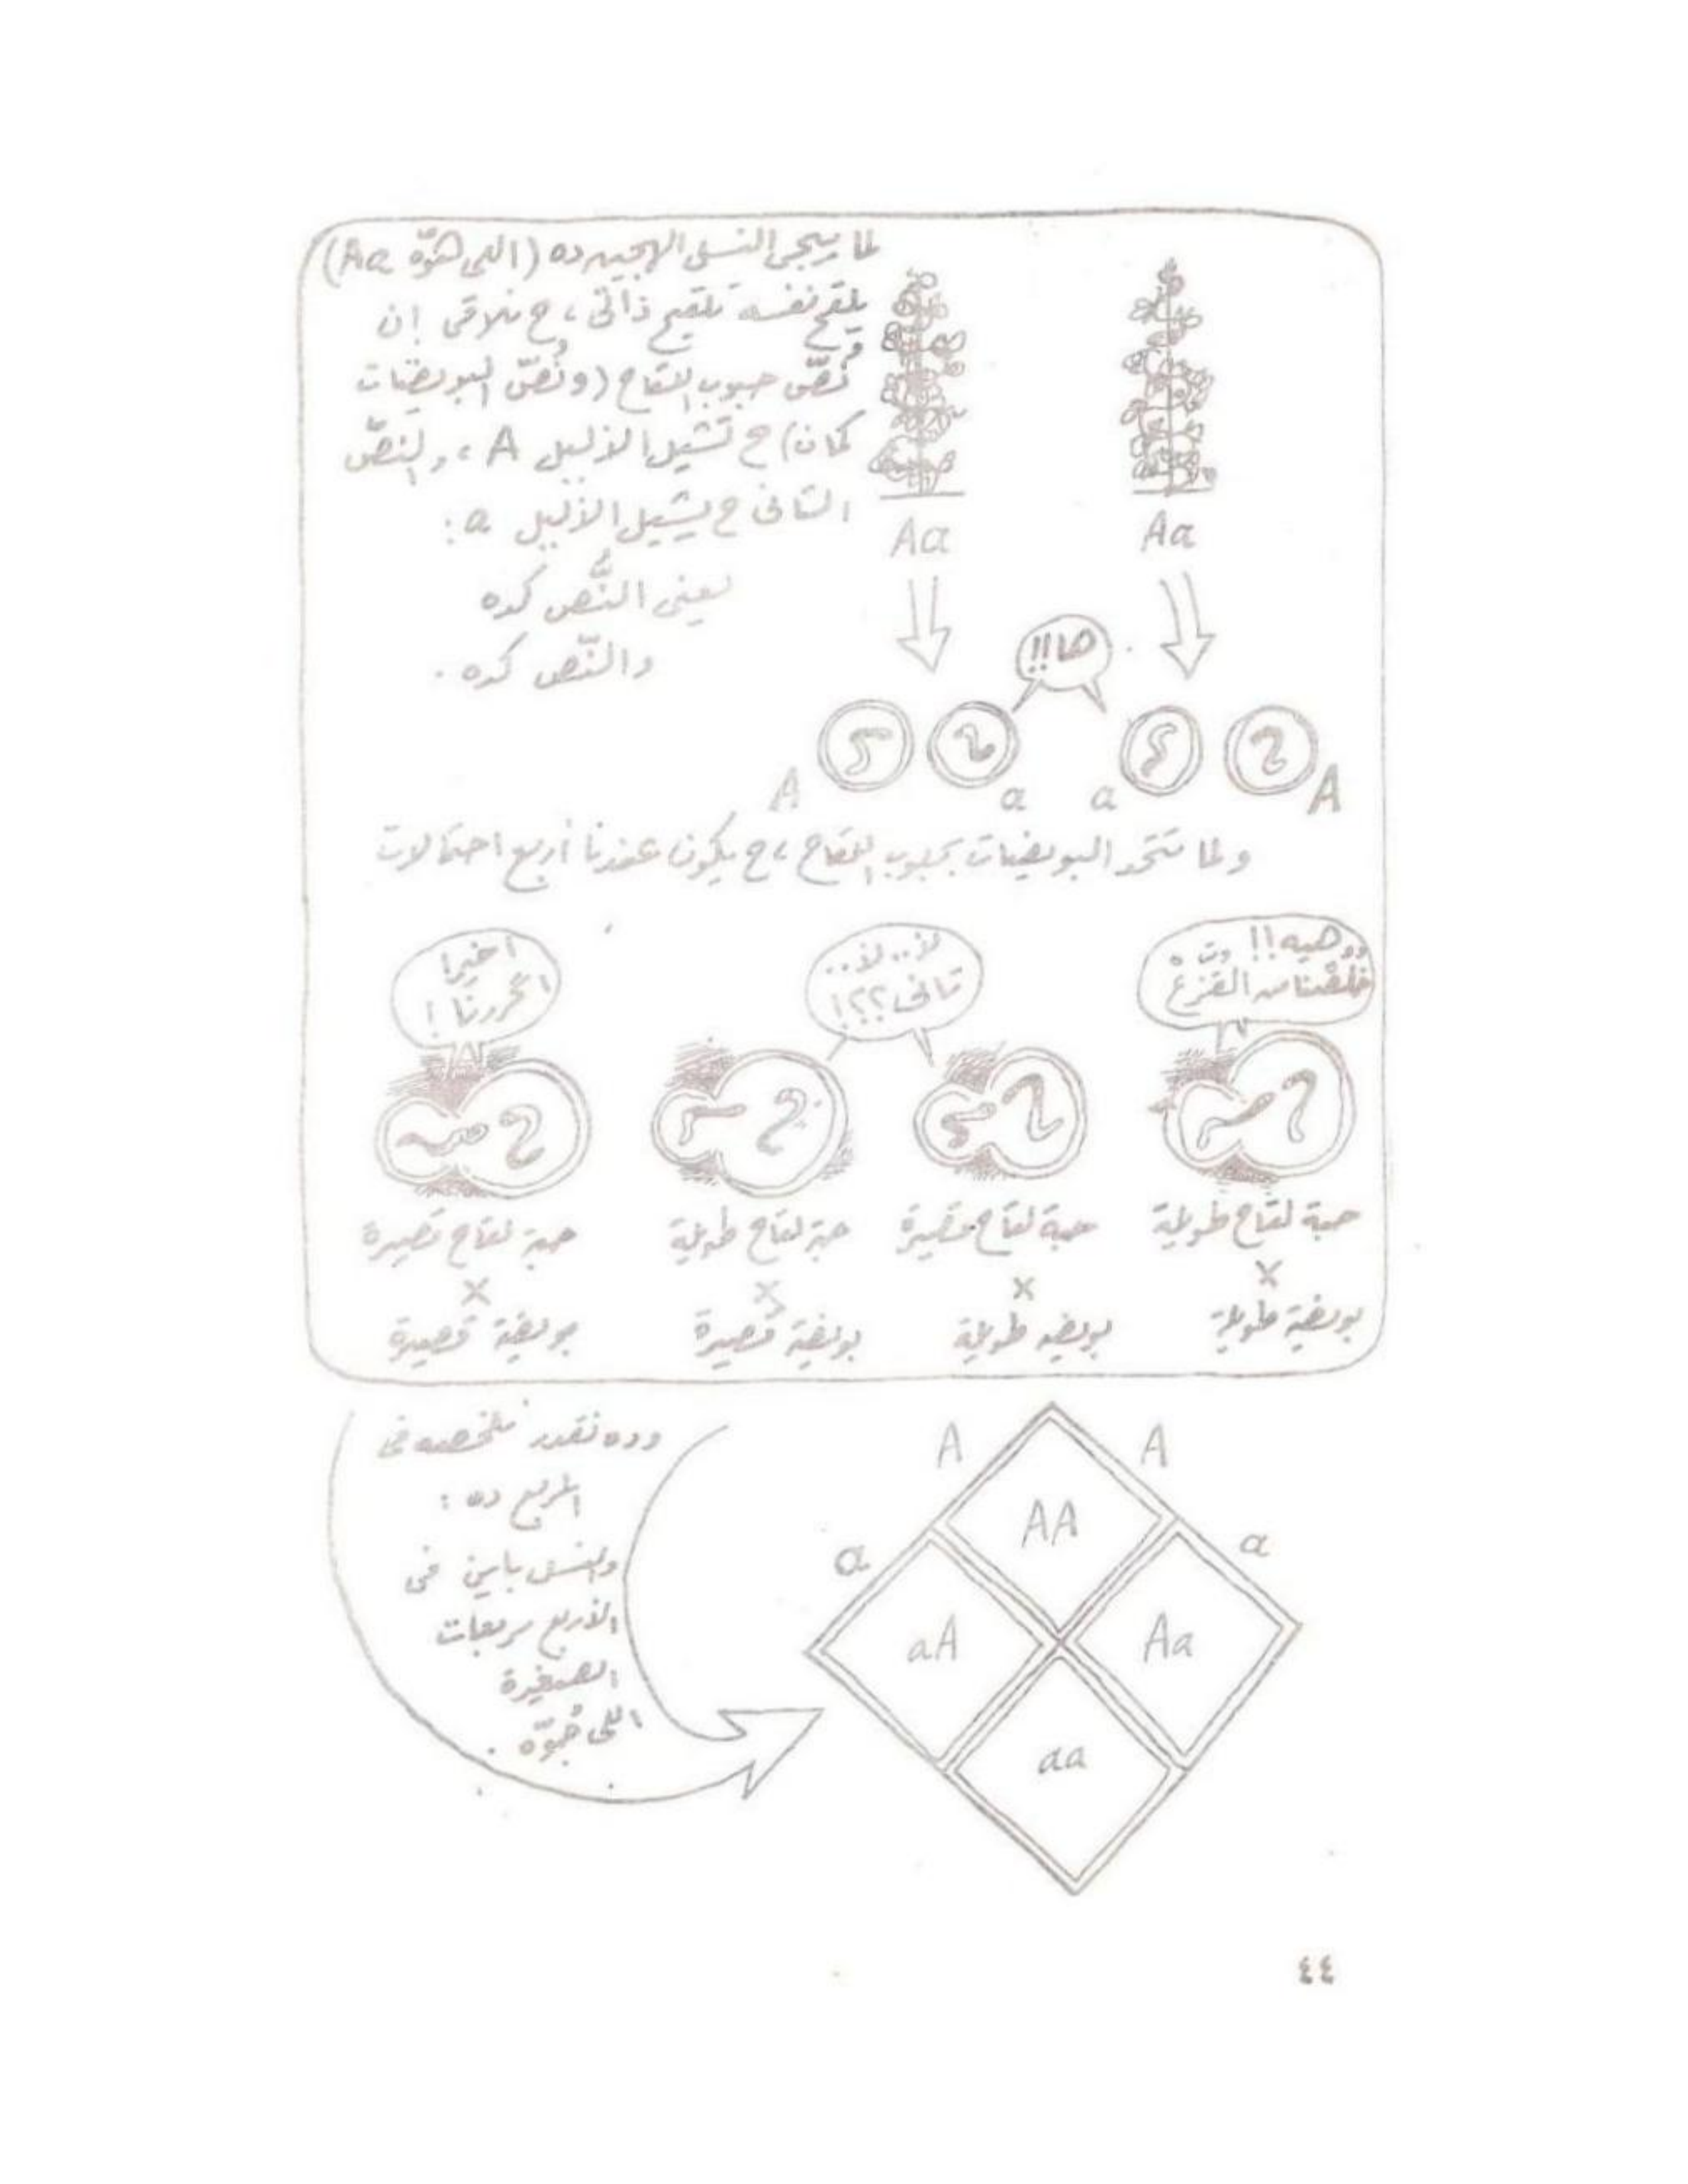 لما ييجى النسل الهجين ده (اللى هوّه Aa)
يلقح نفسه تلقيح ذاتى، ح نلاقى إن
نُصّ حبوب اللقاح (ونُصّ البويضات
كمان) ح تشيل الأليل A، والنُصّ
التانى ح يشيل الأليل a:
يعنى النُّص كده
والنُّص كده.
Aa
Aa
ها!!
A
a
a
A
ولما تتحد البويضات بحبوب اللقاح، ح يكون عندنا أربع احتمالات
هيه!!
خلصنا من القزع
لأ.. لأ..
تانى؟؟!
أخيرا
اتحررنا!
حبة لقاح طويلة
x
بويضة طويلة
حبة لقاح قصيرة
x
بويضه طويلة
حبة لقاح طويلة
x
بويضة قصيرة
حبة لقاح قصيرة
x
بويضة قصيرة
وده نقدر نلخصه فى
المربع ده:
والنسل باين فى
الأربع مربعات
الصغيرة
اللى جُوّه.
A
A
a
a
AA
aA
Aa
aa
٤٤